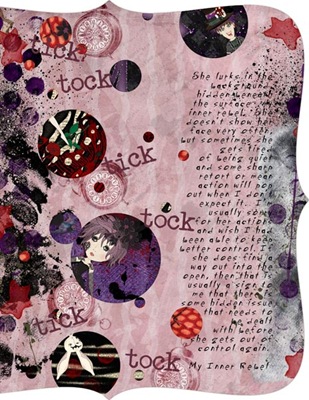 tick
tock
tick
tock
tick
tock
She lurks in the
background
hidden beneath
the surface my
inner rebel. She
doesn't show her
face very often
but sometimes she
gets tired
of being quiet
and some sharp
retort or mean
action will pop
out when I don't
expect it. I
usually
for her actions
and wish I had
been able to keep
better control. If
she does find a
way out into the
open, then that is
usually a sign to
me that there is
some hidden issue
that needs to
be dealt
with before
she gets out of
control again.
My Inner Rebel